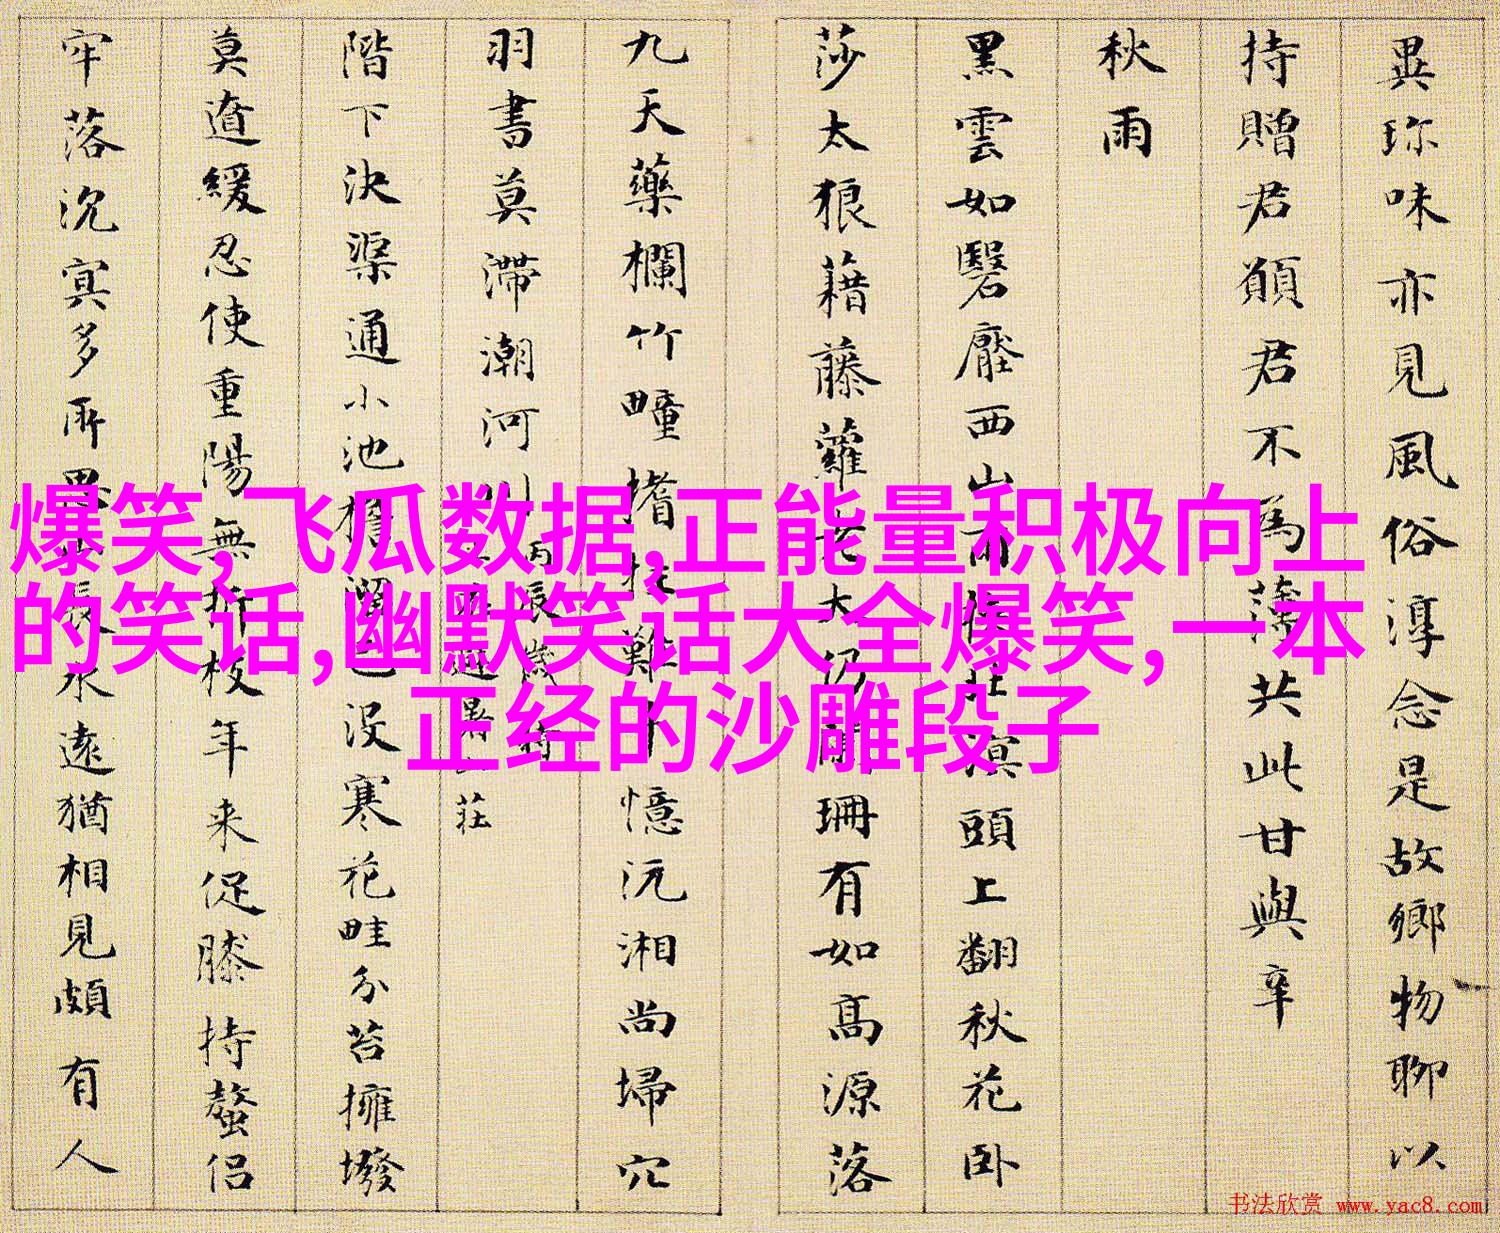 異珎味亦見風俗淳念是故鄉物聊以
持贈君願君不為藻共此甘與辛
秋雨
黑雲如翳壓西山雨頭上翻秋花卧
莎太狼藉藤蘿大珊有如高源落
九天藥欄竹疃難憶沅湘尚埽穴
羽書莫滯潮河川
丙辰歲
莊
階下決渠通小池没寒花畦分苔擁墢
莫遣緩忍使重陽無折枝年来促膝持螯侣
牢落沉冥多所思長水遠猶相見頗有人
爆笑,飞瓜数据,正能量积极向上
的笑话,幽默笑话大全爆笑,一本
正经的沙雕段子
书法欣赏 www.yac8.com